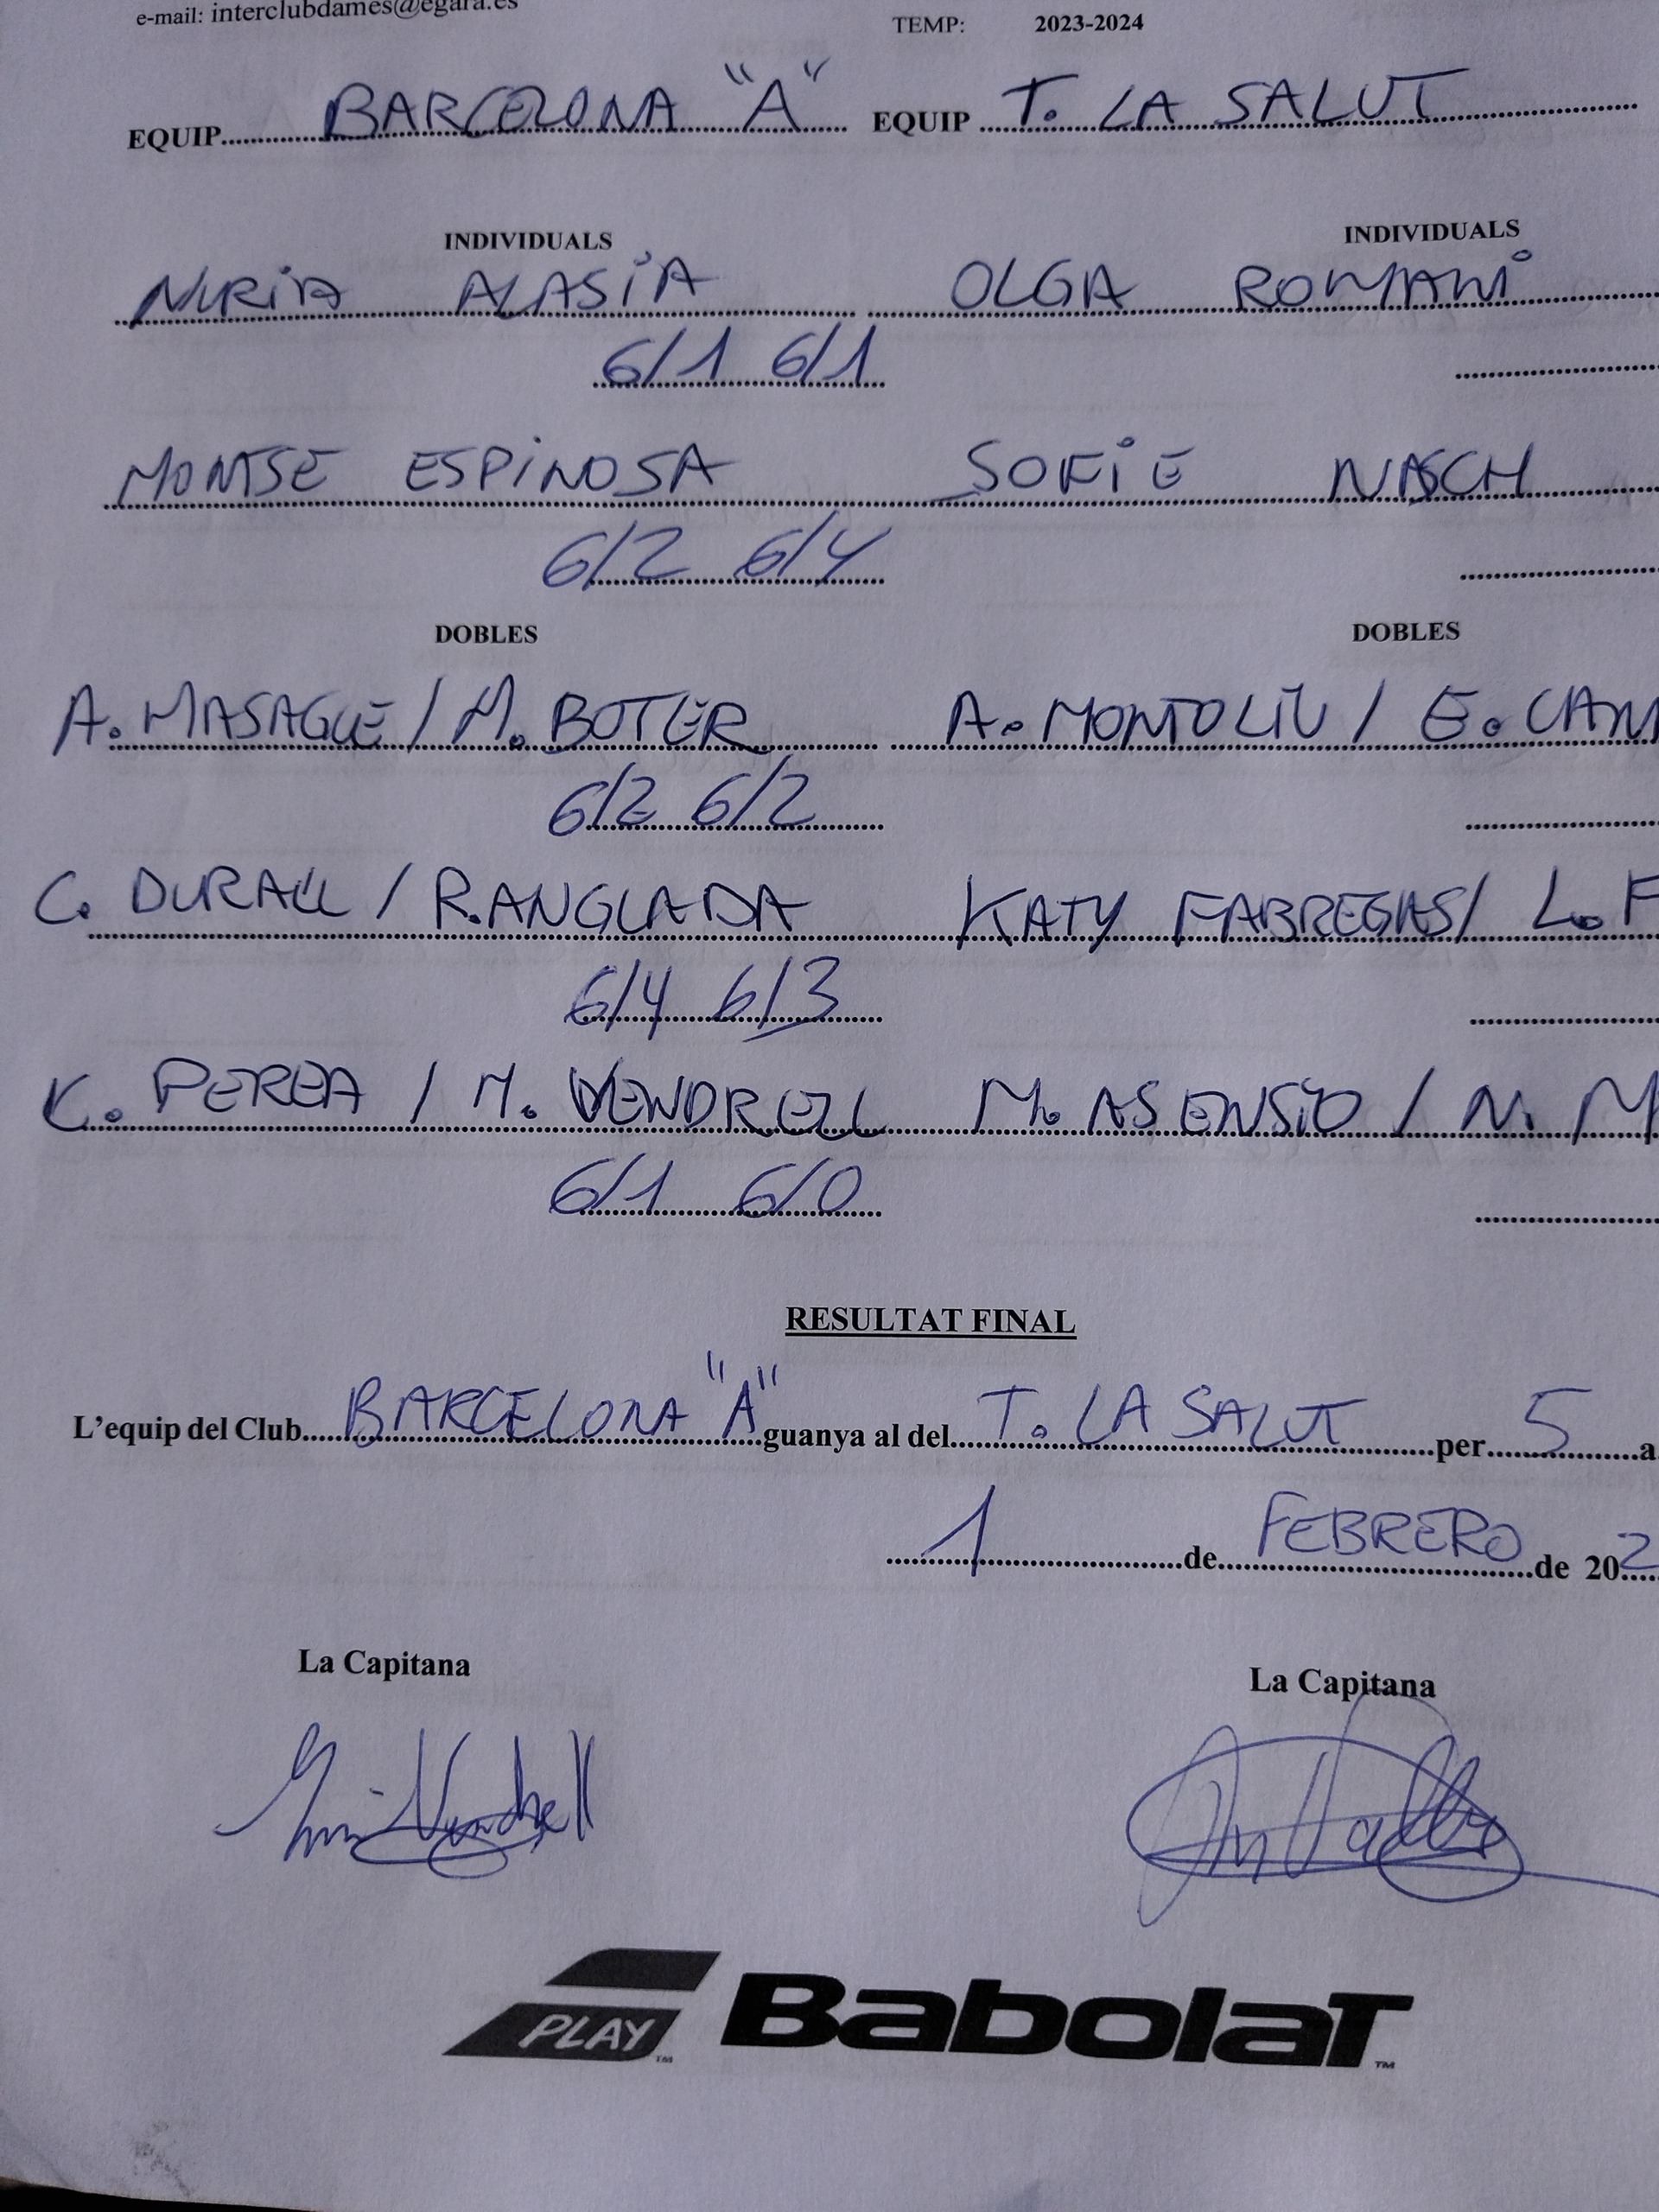 e-mail: interclubdames@egara.es
TEMP: 2023-2024
EQUIP BARCELONA "A" EQUIP T. LA SALUT
INDIVIDUALS INDIVIDUALS
NURiA ALASiA OLGA ROMANi
6/1 6/1
MONTSE ESPiNOSA SOFiE NASCH
6/2 6/4
DOBLES DOBLES
A. MASAGUE / M. BOTER A. MONTOLIU / E. CAM
6/2 6/2
C. DURALL / R. ANGLADA KATY FABREGAS / L. F
6/4 6/3
K. PEREA / M. VENDRELL M. ASENSiO / N. M
6/1 6/0
RESULTAT FINAL
L'equip del Club BARCELONA "A" guanya al del T. LA SALUT per 5 a
1 de FEBRERO de 202
La Capitana La Capitana
PLAY™ BabolaT™